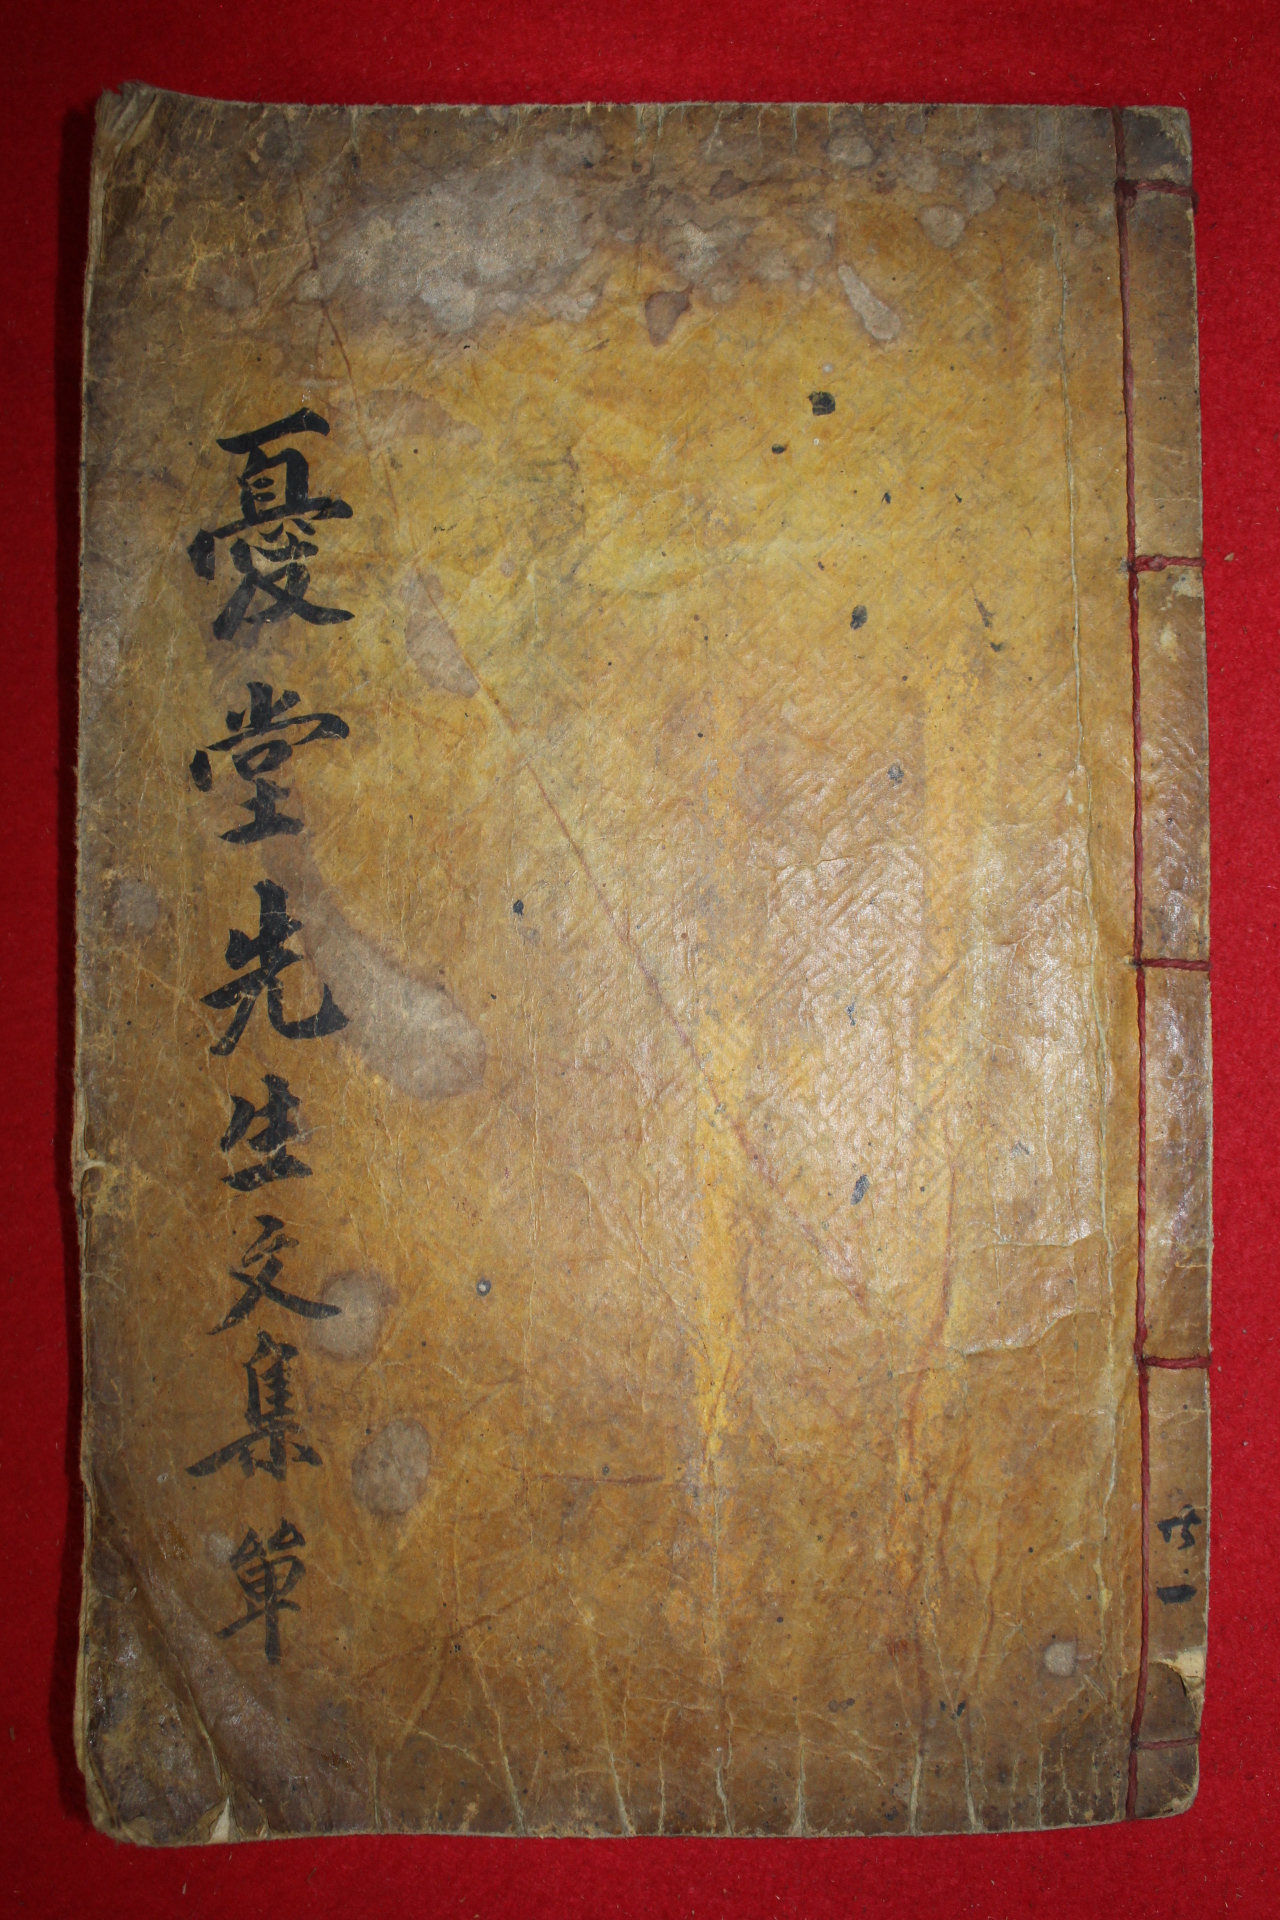 共一
憂堂先生文集 單